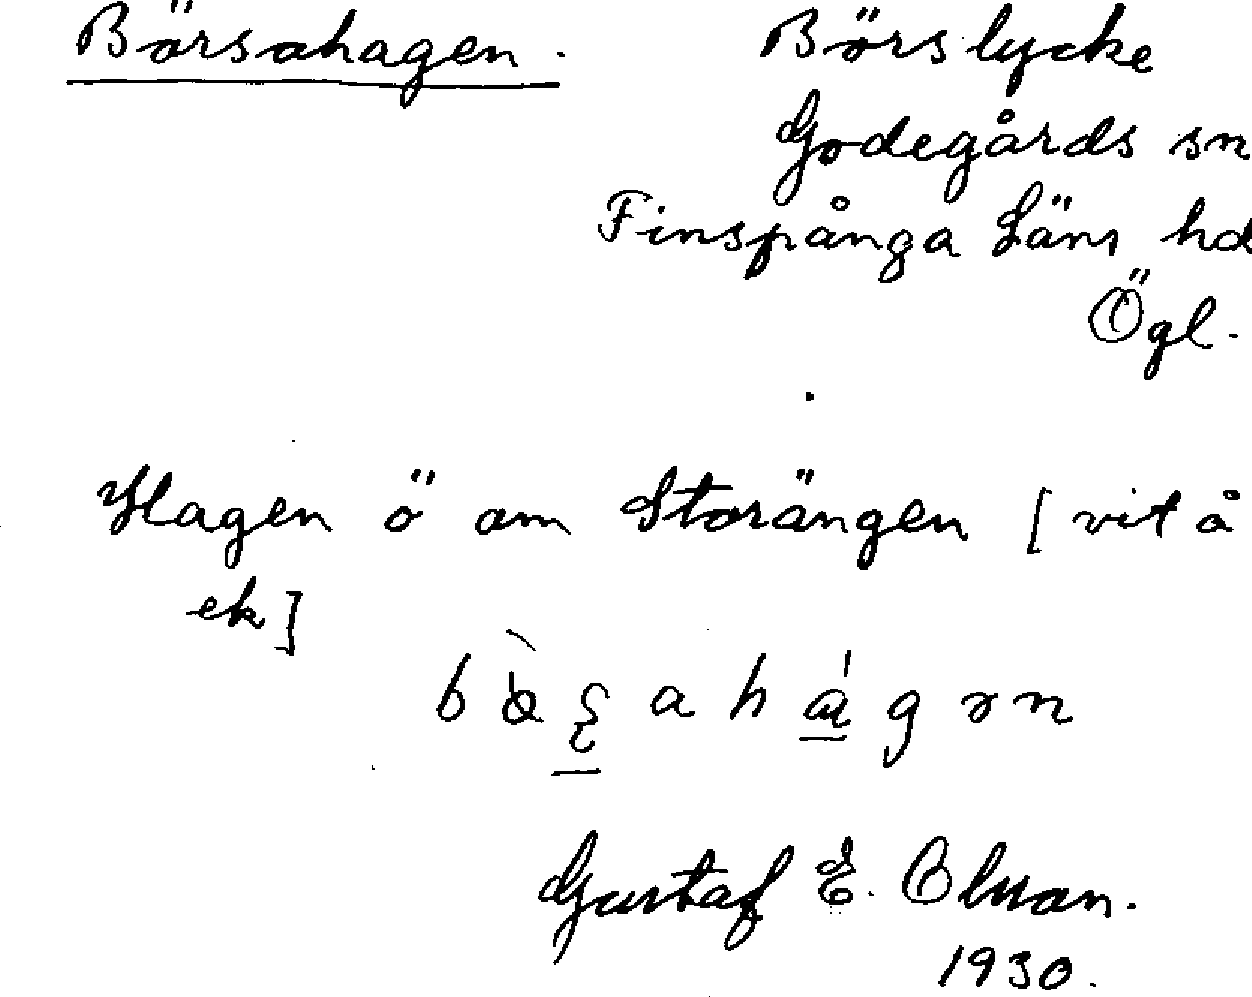 Börsahagen.
Börslycke
Godegårds sn
Finspånga Läns hd
Ögl.
Hagen ö om Storängen [vit å
ek]
Gustaf E. Olsson.
1930.